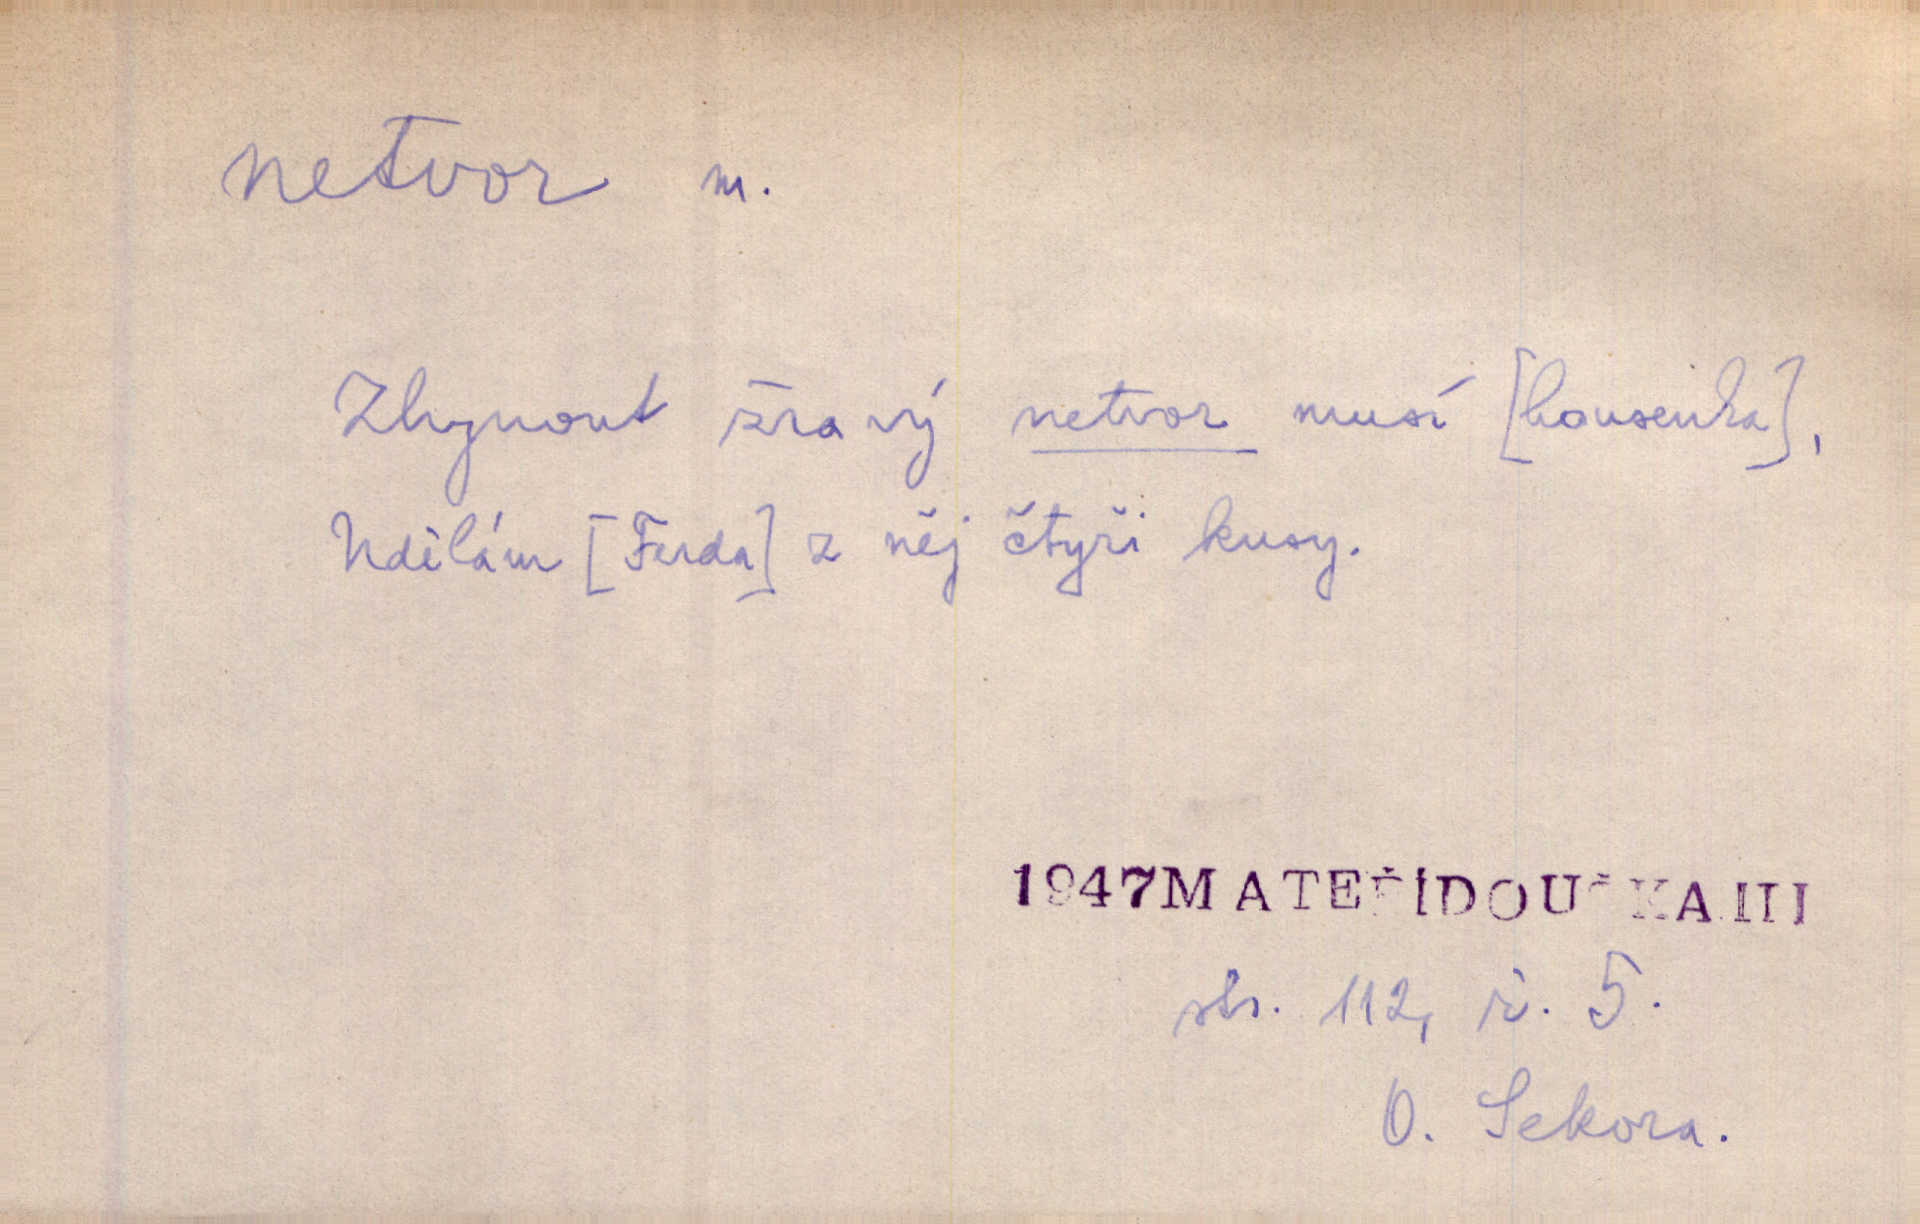 netvor m.
Zhynout žravý netvor musí [housenka],
Udělám [Ferda] z něj čtyři kusy.
1947 MATEŘÍDOUŠKA III
str. 112, ř. 5.
O. Sekora.